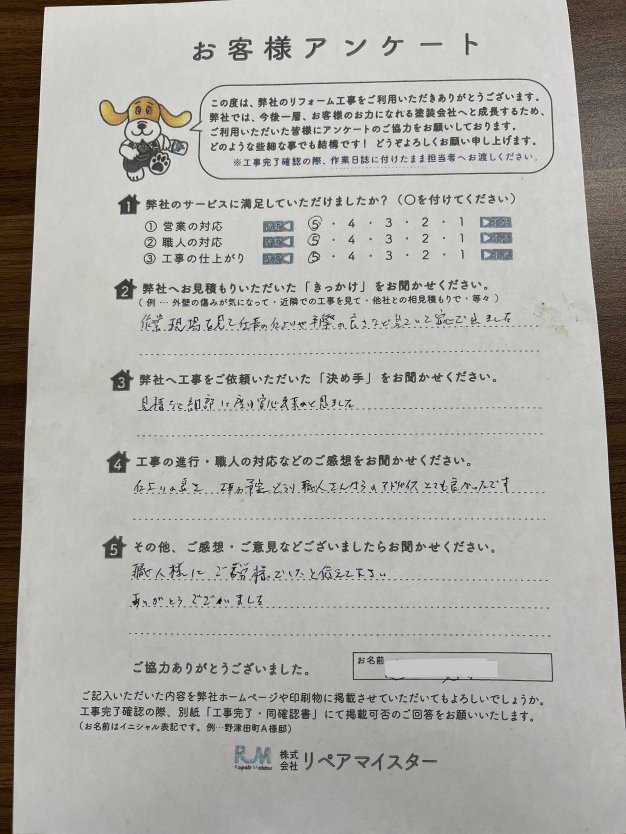 お客様アンケート
この度は、弊社のリフォーム工事をご利用いただきありがとうございます。
弊社では、今後一層、お客様のお力になれる塗装会社へと成長するため、
ご利用いただいた皆様にアンケートのご協力をお願いしております。
どのような些細な事でも結構です！ どうぞよろしくお願い申し上げます。
※工事完了確認の際、作業日誌に付けたまま担当者へお渡しください。
1 弊社のサービスに満足していただけましたか？（〇を付けてください）
① 営業の対応 満足◀ 5・4・3・2・1 ▶不満
② 職人の対応 満足◀ 5・4・3・2・1 ▶不満
③ 工事の仕上がり 満足◀ 5・4・3・2・1 ▶不満
2 弊社へお見積もりいただいた「きっかけ」をお聞かせください。
（例 … 外壁の傷みが気になって・近隣での工事を見て・他社との相見積もりで・等々）
作業現場を見て仕事の仕上りや
3 弊社へ工事をご依頼いただいた「決め手」をお聞かせください。
見積など細部に
4 工事の進行・職人の対応などのご感想をお聞かせください。
仕上りの良さ 職人さんからのアドバイスとても良かったです
5 その他、ご感想・ご意見などございましたらお聞かせください。
職人様にご苦労様でしたと伝えて下さい
ありがとうございました
ご協力ありがとうございました。
お名前
ご記入いただいた内容を弊社ホームページや印刷物に掲載させていただいてもよろしいでしょうか。
工事完了確認の際、別紙「工事完了・同確認書」にて掲載可否のご回答をお願いいたします。
（お名前はイニシャル表記です。例…野津田町A様邸）
RM Repair Meister 株式会社 リペアマイスター